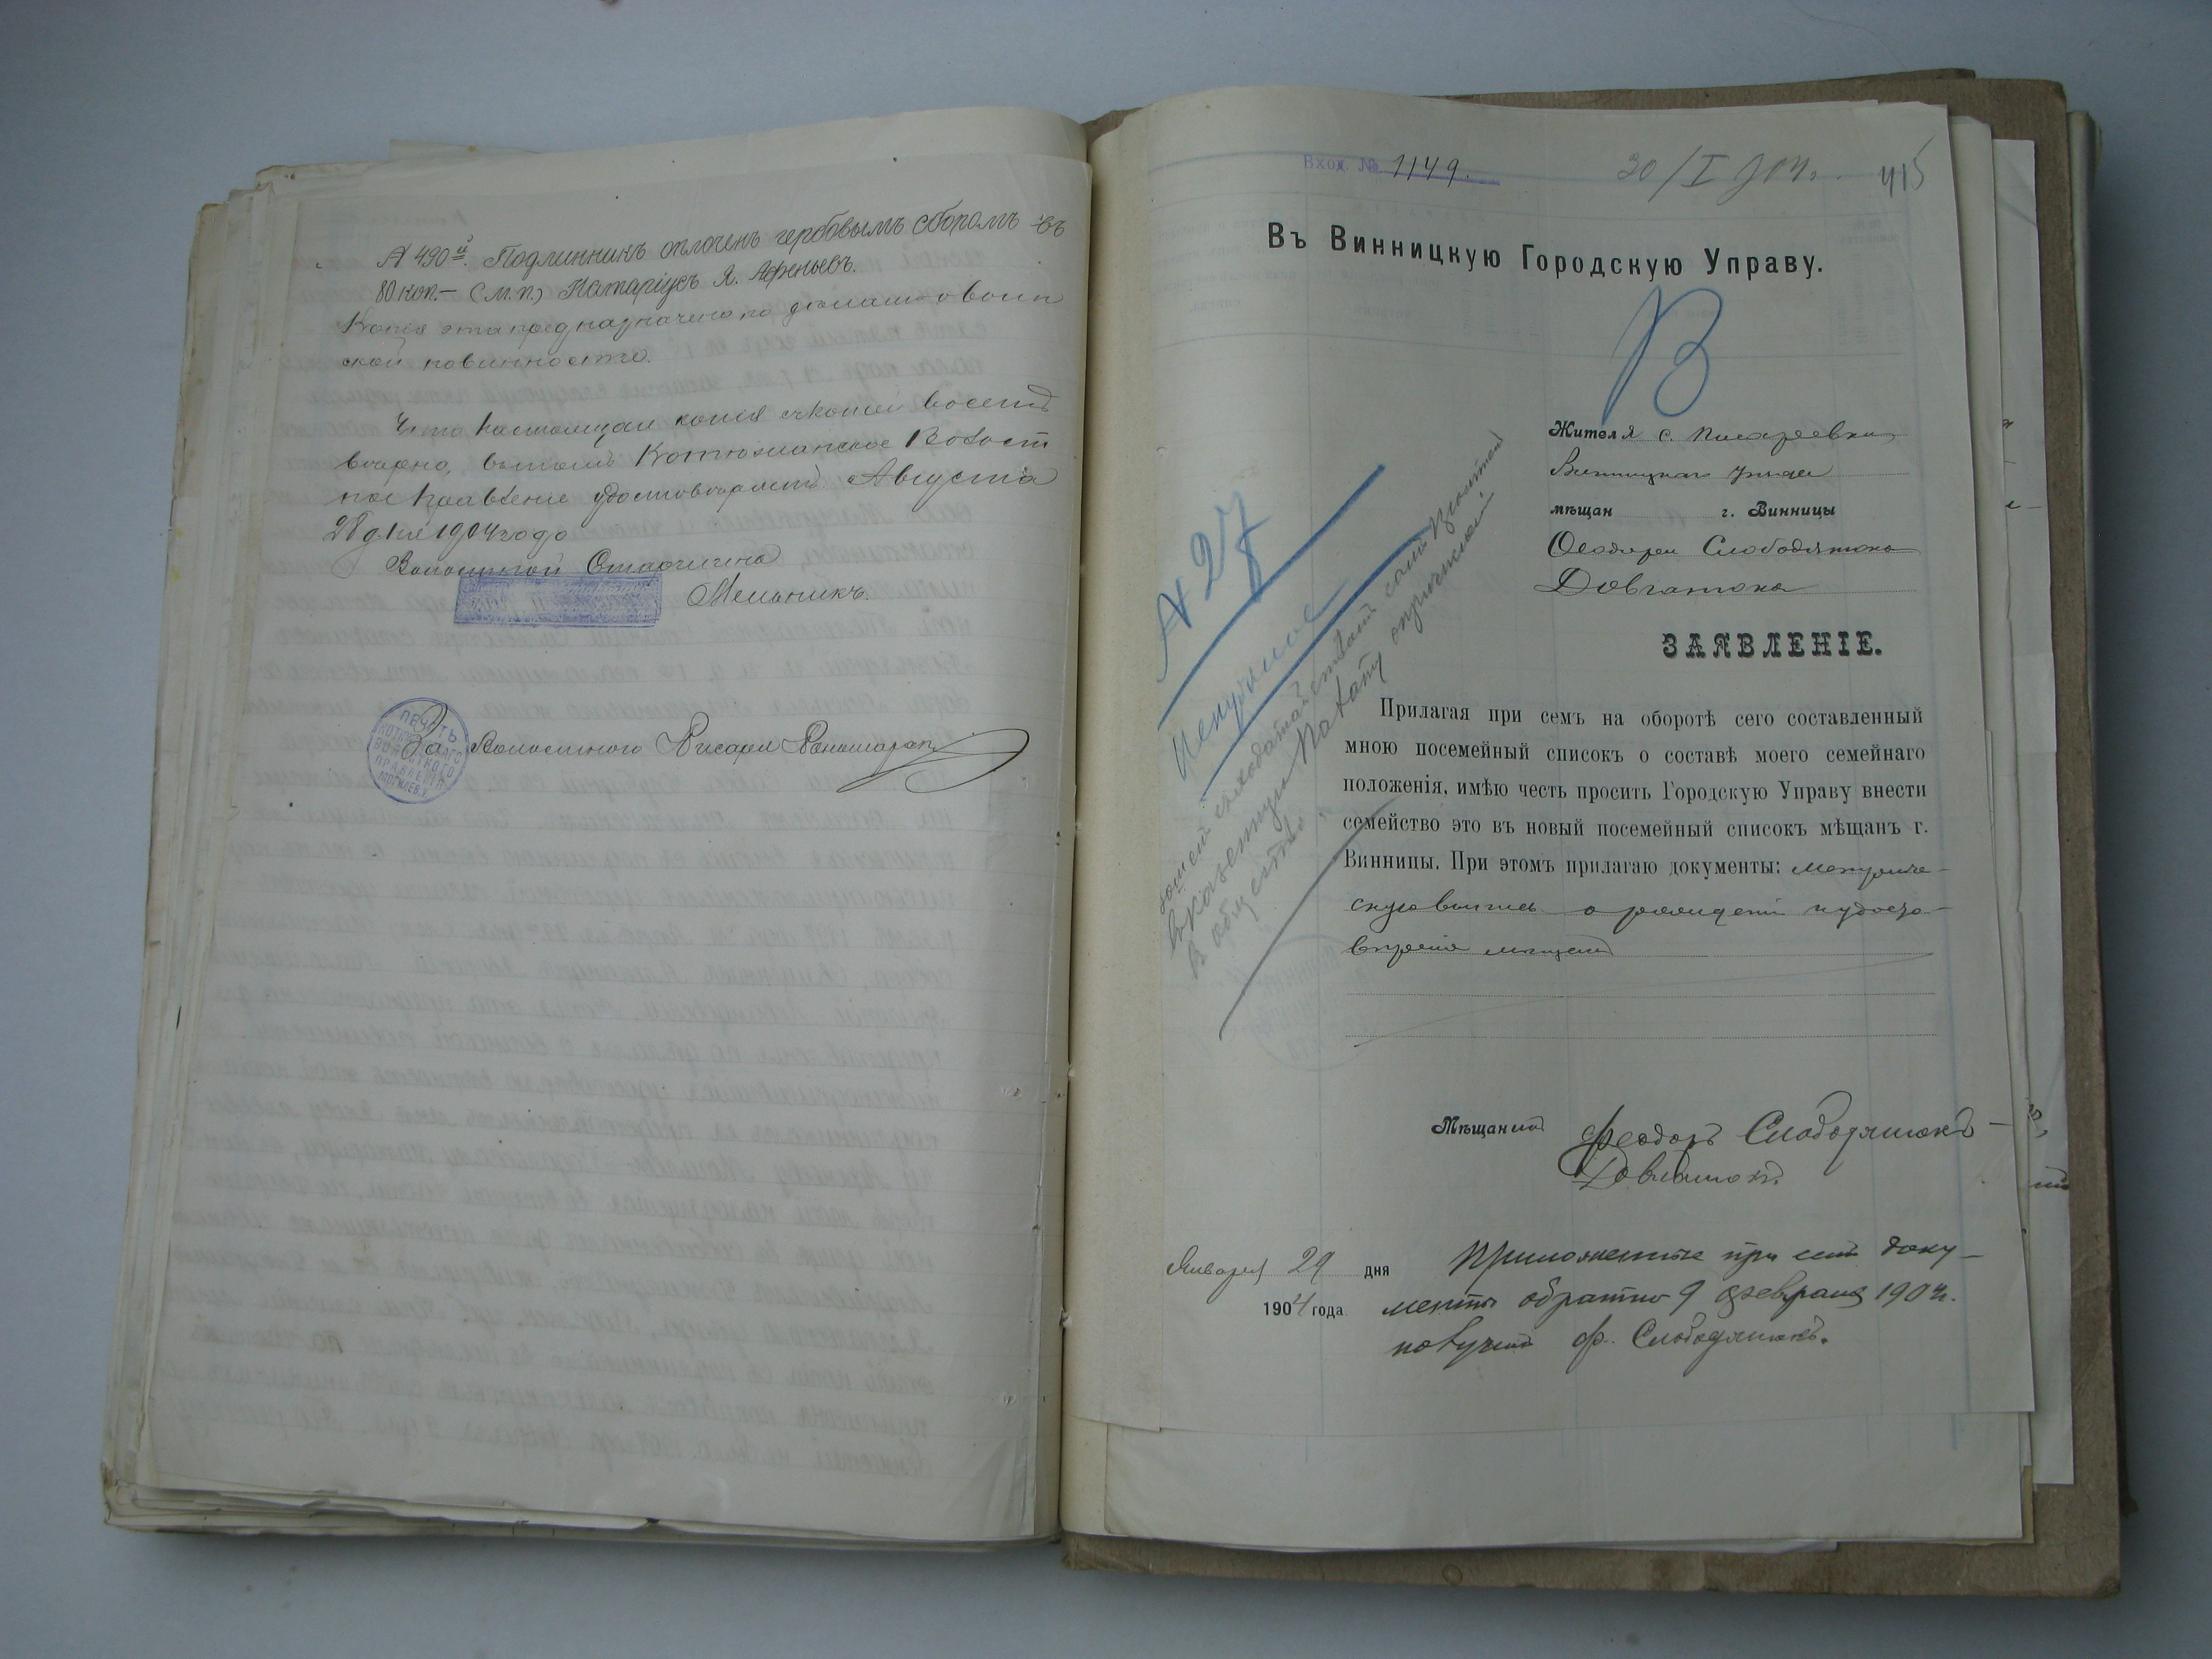 № 490й. Подлинникъ оплоченъ гербовымъ сборомъ въ
80 коп.— (М.П.) Нотаріусъ Я. Афеньевъ.
Копія эта предназначена по деламъ о воин
ской повинности.
Что настоящая копія съ копіей
верно, въ томъ Котюжанское Волост
ное Правленіе удостоверяетъ Августа
28 дня 1904 года
Волостной Старшина
Мельникъ.
За Волостного Писаря
ПЕЧАТЬ
КОТЮЖАНСКОГО
ВОЛОСТКОГО
ПРАВЛЕНІЯ
МОГИЛЕВ. У.
Вход. № 1149.
30/I 904 г.
415
Въ Винницкую Городскую Управу.
В
Жителя с. Писаревки
Винницкаго уезда
мѣщан г. Винницы
Феодора Слободянюка
Довганюка
ЗАЯВЛЕНІЕ.
№ 27
Прилагая при семъ на оборотѣ сего составленный
мною посемейный списокъ о составѣ моего семейнаго
положенія, имѣю честь просить Городскую Управу внести
семейство это въ новый посемейный списокъ мѣщанъ г.
Винницы. При этомъ прилагаю документы: метриче-
скую выпись о рождении и удосто-
верение
въ общество
Мѣщанинъ Феодоръ Слободянюкъ-
Довганюкъ.
Января 29 дня
1904 года.
Приложенные при семъ доку-
менты обратно 9 февраля 1904 г.
получилъ Ф. Слободянюкъ.